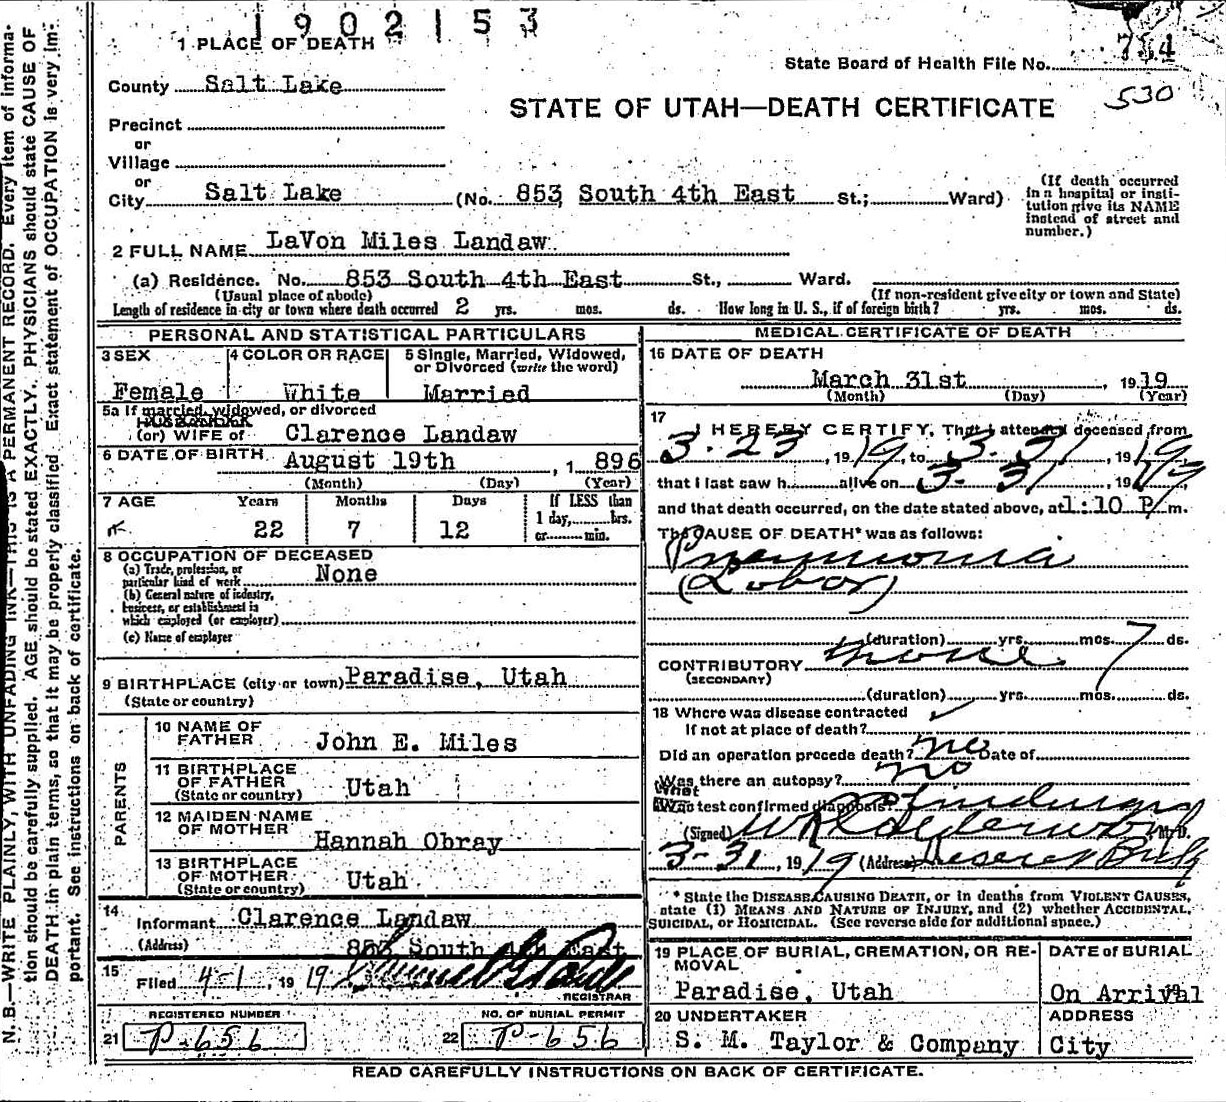 1902153
1 PLACE OF DEATH
State Board of Health File No. 784
530
County Salt Lake
STATE OF UTAH—DEATH CERTIFICATE
Precinct
or
Village
or
City Salt Lake (No. 853 South 4th East St.; Ward)
(If death occurred in a hospital or insti-
tution give its NAME
instead of street and
number.)
2 FULL NAME LaVon Miles Landaw
(a) Residence. No. 853 South 4th East St., Ward.
(Usual place of abode) (If non-resident give city or town and State)
Length of residence in city or town where death occurred 2 yrs. mos. ds. How long in U. S., if of foreign birth? yrs. mos. ds.
PERSONAL AND STATISTICAL PARTICULARS
3 SEX 4 COLOR OR RACE 5 Single, Married, Widowed,
or Divorced (write the word)
Female White Married
5a If married, widowed, or divorced
HUSBAND of
(or) WIFE of Clarence Landaw
6 DATE OF BIRTH August 19th, 1896
(Month) (Day) (Year)
7 AGE Years Months Days If LESS than
1 day, hrs.
or min.
22 7 12
8 OCCUPATION OF DECEASED
(a) Trade, profession, or
particular kind of work None
(b) General nature of industry,
business, or establishment in
which employed (or employer)
(c) Name of employer
9 BIRTHPLACE (city or town) Paradise, Utah
(State or country)
PARENTS
10 NAME OF
FATHER John E. Miles
11 BIRTHPLACE
OF FATHER
(State or country) Utah
12 MAIDEN NAME
OF MOTHER Hannah Obray
13 BIRTHPLACE
OF MOTHER
(State or country) Utah
14 Informant Clarence Landaw
(Address) 853 South 4th East
15 Filed 4-1, 1919
REGISTRAR
REGISTERED NUMBER NO. OF BURIAL PERMIT
21 P-656 22 P-656
MEDICAL CERTIFICATE OF DEATH
16 DATE OF DEATH
March 31st, 1919
(Month) (Day) (Year)
17 I HEREBY CERTIFY, That I attended deceased from
3-23, 1919, to 3-31, 1919
that I last saw h alive on 3-31, 1919
and that death occurred, on the date stated above, at 1:10 P m.
The CAUSE OF DEATH* was as follows:
Pneumonia
(Lobar)
(duration) yrs. mos. 7 ds.
CONTRIBUTORY none
(SECONDARY)
(duration) yrs. mos. ds.
18 Where was disease contracted
If not at place of death?
Did an operation precede death? no Date of
Was there an autopsy? no
What
test confirmed diagnosis? Findings
(Signed) M. D.
3-31, 1919 (Address) Deseret Bnk Bldg
* State the DISEASE CAUSING DEATH, or in deaths from VIOLENT CAUSES,
state (1) MEANS AND NATURE OF INJURY, and (2) whether ACCIDENTAL,
SUICIDAL, or HOMICIDAL. (See reverse side for additional space.)
19 PLACE OF BURIAL, CREMATION, OR RE-
MOVAL
Paradise, Utah
DATE of BURIAL
On Arrival 19
20 UNDERTAKER
S. M. Taylor & Company
ADDRESS
City
READ CAREFULLY INSTRUCTIONS ON BACK OF CERTIFICATE.
N. B.—WRITE PLAINLY, WITH UNFADING INK—THIS IS A PERMANENT RECORD. Every item of informa-
tion should be carefully supplied. AGE should be stated EXACTLY. PHYSICIANS should state CAUSE OF
DEATH in plain terms, so that it may be properly classified. Exact statement of OCCUPATION is very im-
portant. See instructions on back of certificate.